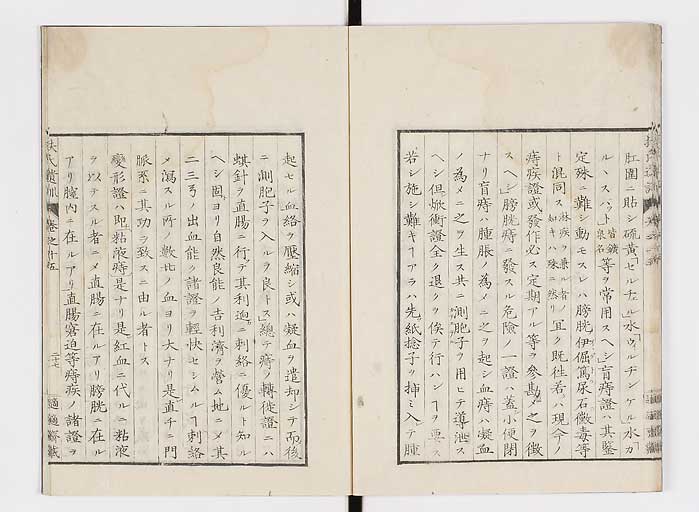 肛圍ニ貼シ硫黄「セルチェル」水「ウ井ルヂンゲル」水「カ
ルヽスバット」皆鑛泉名等ヲ常用スヘシ盲痔證ハ其鑒
定殊ニ難シ動モスレハ膀胱伊倔篤尿石黴毒等
ト混同ス淋疾ヲ兼ル者ノ如キハ殊ニ然リ宜ク既往着目現今ノ
痔疾證或發作必ス定期アル等ヲ參勘メ之ヲ徴
スヘシ膀胱痔ニ發スル危險ノ一證ハ蓋小便閉
ナリ盲痔ハ腫脹ノ為メニ之ヲ起シ血痔ハ凝血
ノ為メニ之ヲ生ス共ニ測胞子ヲ用ヒテ導泄ス
ヘシ但焮衝證全ク退クヲ俟テ行ハンヿヲ要ス
若シ施シ難キヿアラハ先紙捻子ヲ挿ミ入テ腫
起セル血絡ヲ壓縮シ或ハ凝血ヲ遣却シテ而後
ニ測胞子ヲ入ルヲ良トス總テ痔ノ轉徙證ニハ
蜞針ヲ直腸ニ行テ其利迥ニ刺絡ニ優ルト知ル
ヘシ固ヨリ自然良能ノ吉利濟ヲ營ム地ニメ其
二三弓ノ出血能ク諸證ヲ輕快セシムルヿ刺絡
メ瀉スル所ノ數比ノ血ヨリ大ナリ是直チニ門
脈系ニ其功ヲ致スニ由ル者トス
變形證ハ即粘液痔是ナリ是紅血ニ代ルニ粘液
ヲ以テスル者ニメ直腸ニ在ルアリ膀胱ニ在ル
アリ膣内ニ在ルアリ直腸窘迫等痔疾ノ諸證ヲ
扶氏遺訓
卷之十五
二十七
適適齋藏